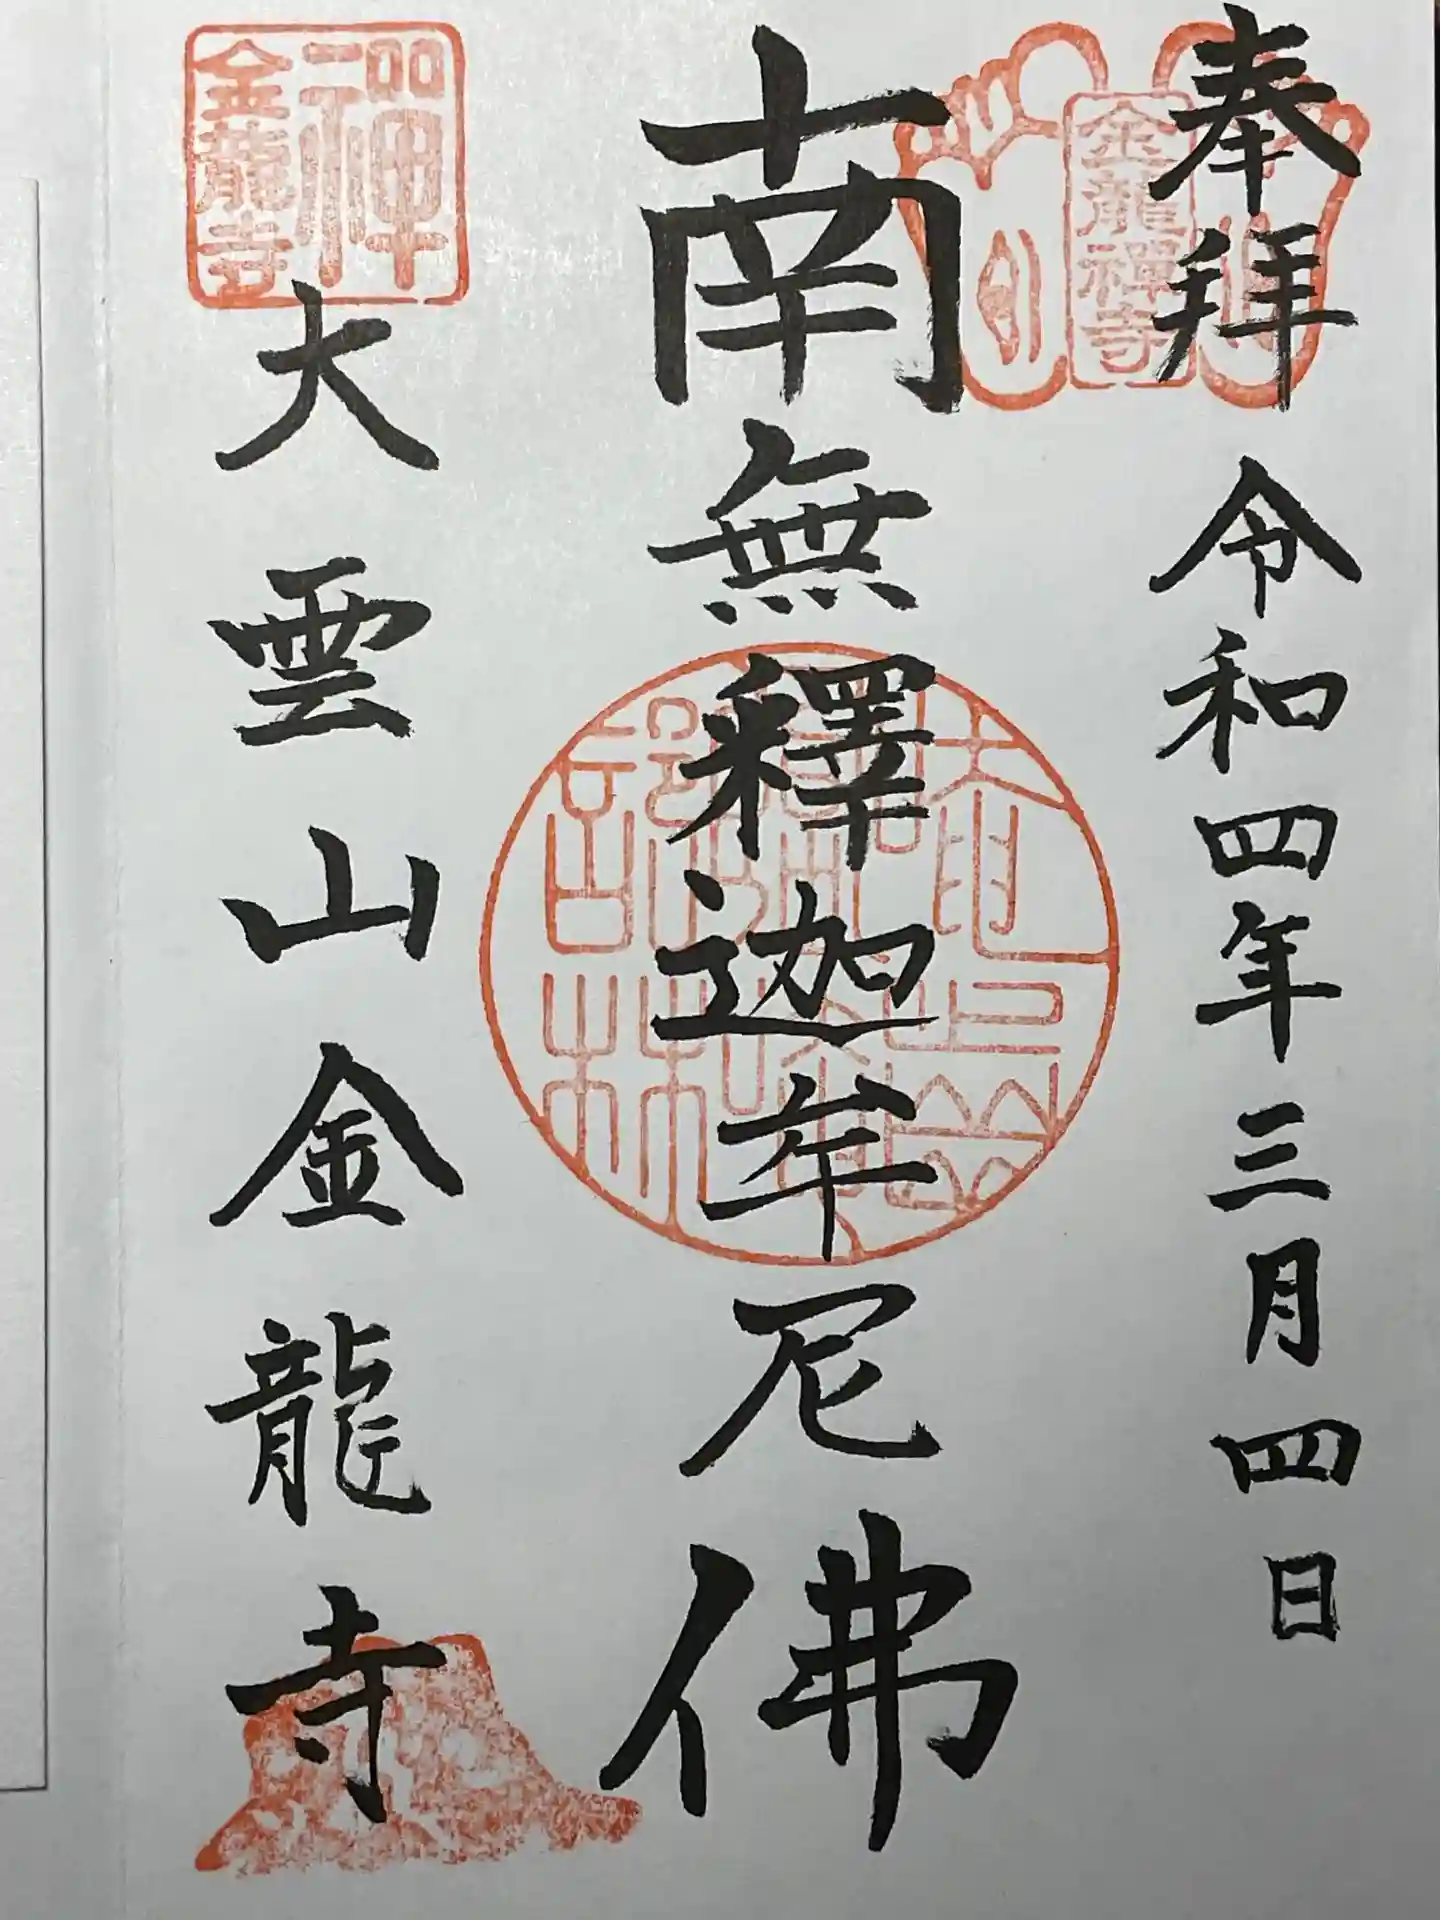 奉拜 令和四年三月四日
金龍禪寺
南無釋迦牟尼佛
禪
金龍寺
大雲山金龍寺